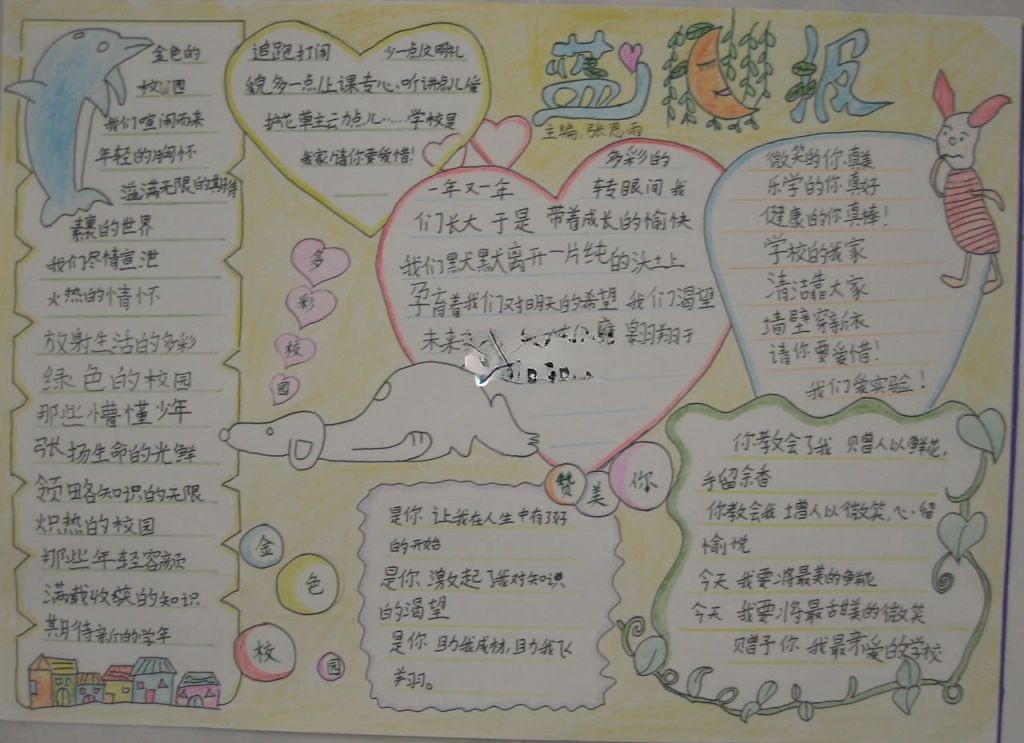 金色的
校园
我们喧闹而来
年轻的胸怀
溢满无限的期待
的世界
我们尽情宣泄
火热的情怀
放射生活的多彩
绿色的校园
那些懵懂少年
张扬生命的光鲜
领略知识的无限
炽热的校园
那些年轻容颜
满载收获的知识
期待新的学年
追跑打闹 少一点文明礼
貌多一点儿上课专心、听讲点儿爱
护花草主云力点儿……学校是
我家请你要爱惜！
蓝 报
主编：张思雨
多彩的
一年又一年 转眼间 我
们长大 于是 带着成长的愉快
我们默默离开一片纯的沃土上
孕育着我们对明天的希望 我们渴望
未来
翱翔于
微笑的你真美
乐学的你真好
健康的你真棒！
学校的我家
清洁靠大家
墙壁穿新衣
请你要爱惜！
我们爱实验！
多
彩
校
园
金
色
校
园
赞美你
是你 让我在人生中有了好
的开始
是你 激发起了我对知识
的渴望
是你 助我成材，助我飞
羊羽。
你教会了我 贝赠人以鲜花，
手留余香
你教会我 增人以微笑，心留
愉悦
今天 我要将最美的鲜花
今天 我要将最甜美的微笑
赠予你 我最亲爱的学校